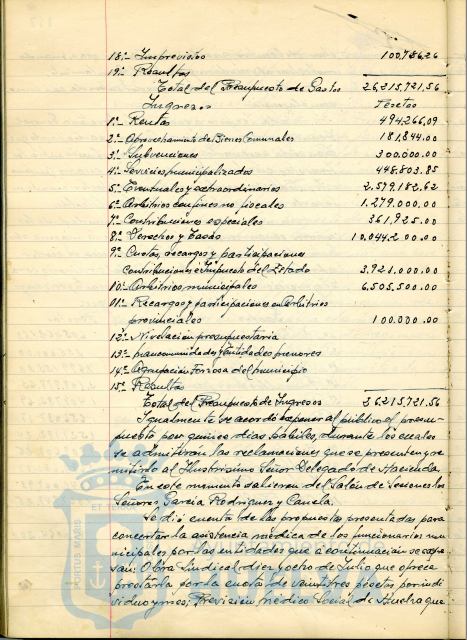 18º- Imprevistos 100,786,26
19º- Resultas
Total del Presupuesto de Gastos 26,215,721.56
Ingresos Pesetas
1º- Rentas 494,266,09
2º- Aprovechamiento de Bienes Comunales 181,844.00
3º- Subvenciones 300.000.00
4º- Servicios municipalizados 448.803.85
5º- Eventuales y extraordinarios 2.579,182.62
6º- Arbitrios con fines no fiscales 1.279.000.00
7º- Contribuciones especiales 361,925.00
8º- Derechos y Tasas 10,044.200.00
9º- Cuotas, recargos y participaciones
contribuciones e Impuesto del Estado 3.921.000.00
10º- Arbitrios municipales 6.505,500.00
11º- Recargos y participaciones en Arbitrios
provinciales 100.000.00
12º- Nivelación presupuestaria
13º- mancomunidades y Entidades menores
14º- Agrupación Forzosa del municipio
15º- Resultas
Total del Presupuesto de Ingresos 26,215,721.56
Igualmente se acordó exponer al público el presu-
puesto por quince días hábiles, durante los cuales
se admitirán las reclamaciones que se presenten y re-
mitirlo al Ilustrísimo Señor Delegado de Hacienda.
En este momento salieron del Salón de Sesiones los
Señores, García Rodriguez y Canela.
Se dió cuenta de las propuestas presentadas para
concertar la asistencia médica de los funcionarios mu-
nicipales por las entidades que a continuación se expre-
san: Obra Sindical diez y ocho de Julio que ofrece
prestarla por la cuota de veintitres pesetas por indi-
viduo y mes; Previsión médico Social de Huelva que
PORTUS MARIS
ET